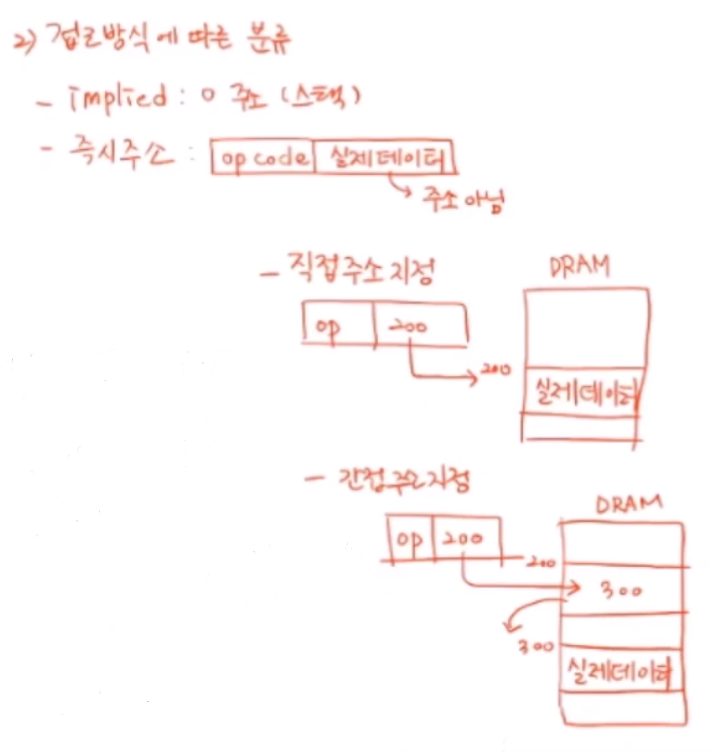 2) 접근방식에 따른 분류
- implied : 0 주소 (스택)
- 즉시주소 : op code 실제데이터
주소 아님
- 직접주소지정
DRAM
op 200
200
실제데이터
- 간접주소지정
DRAM
op 200
200
300
300
실제데이터